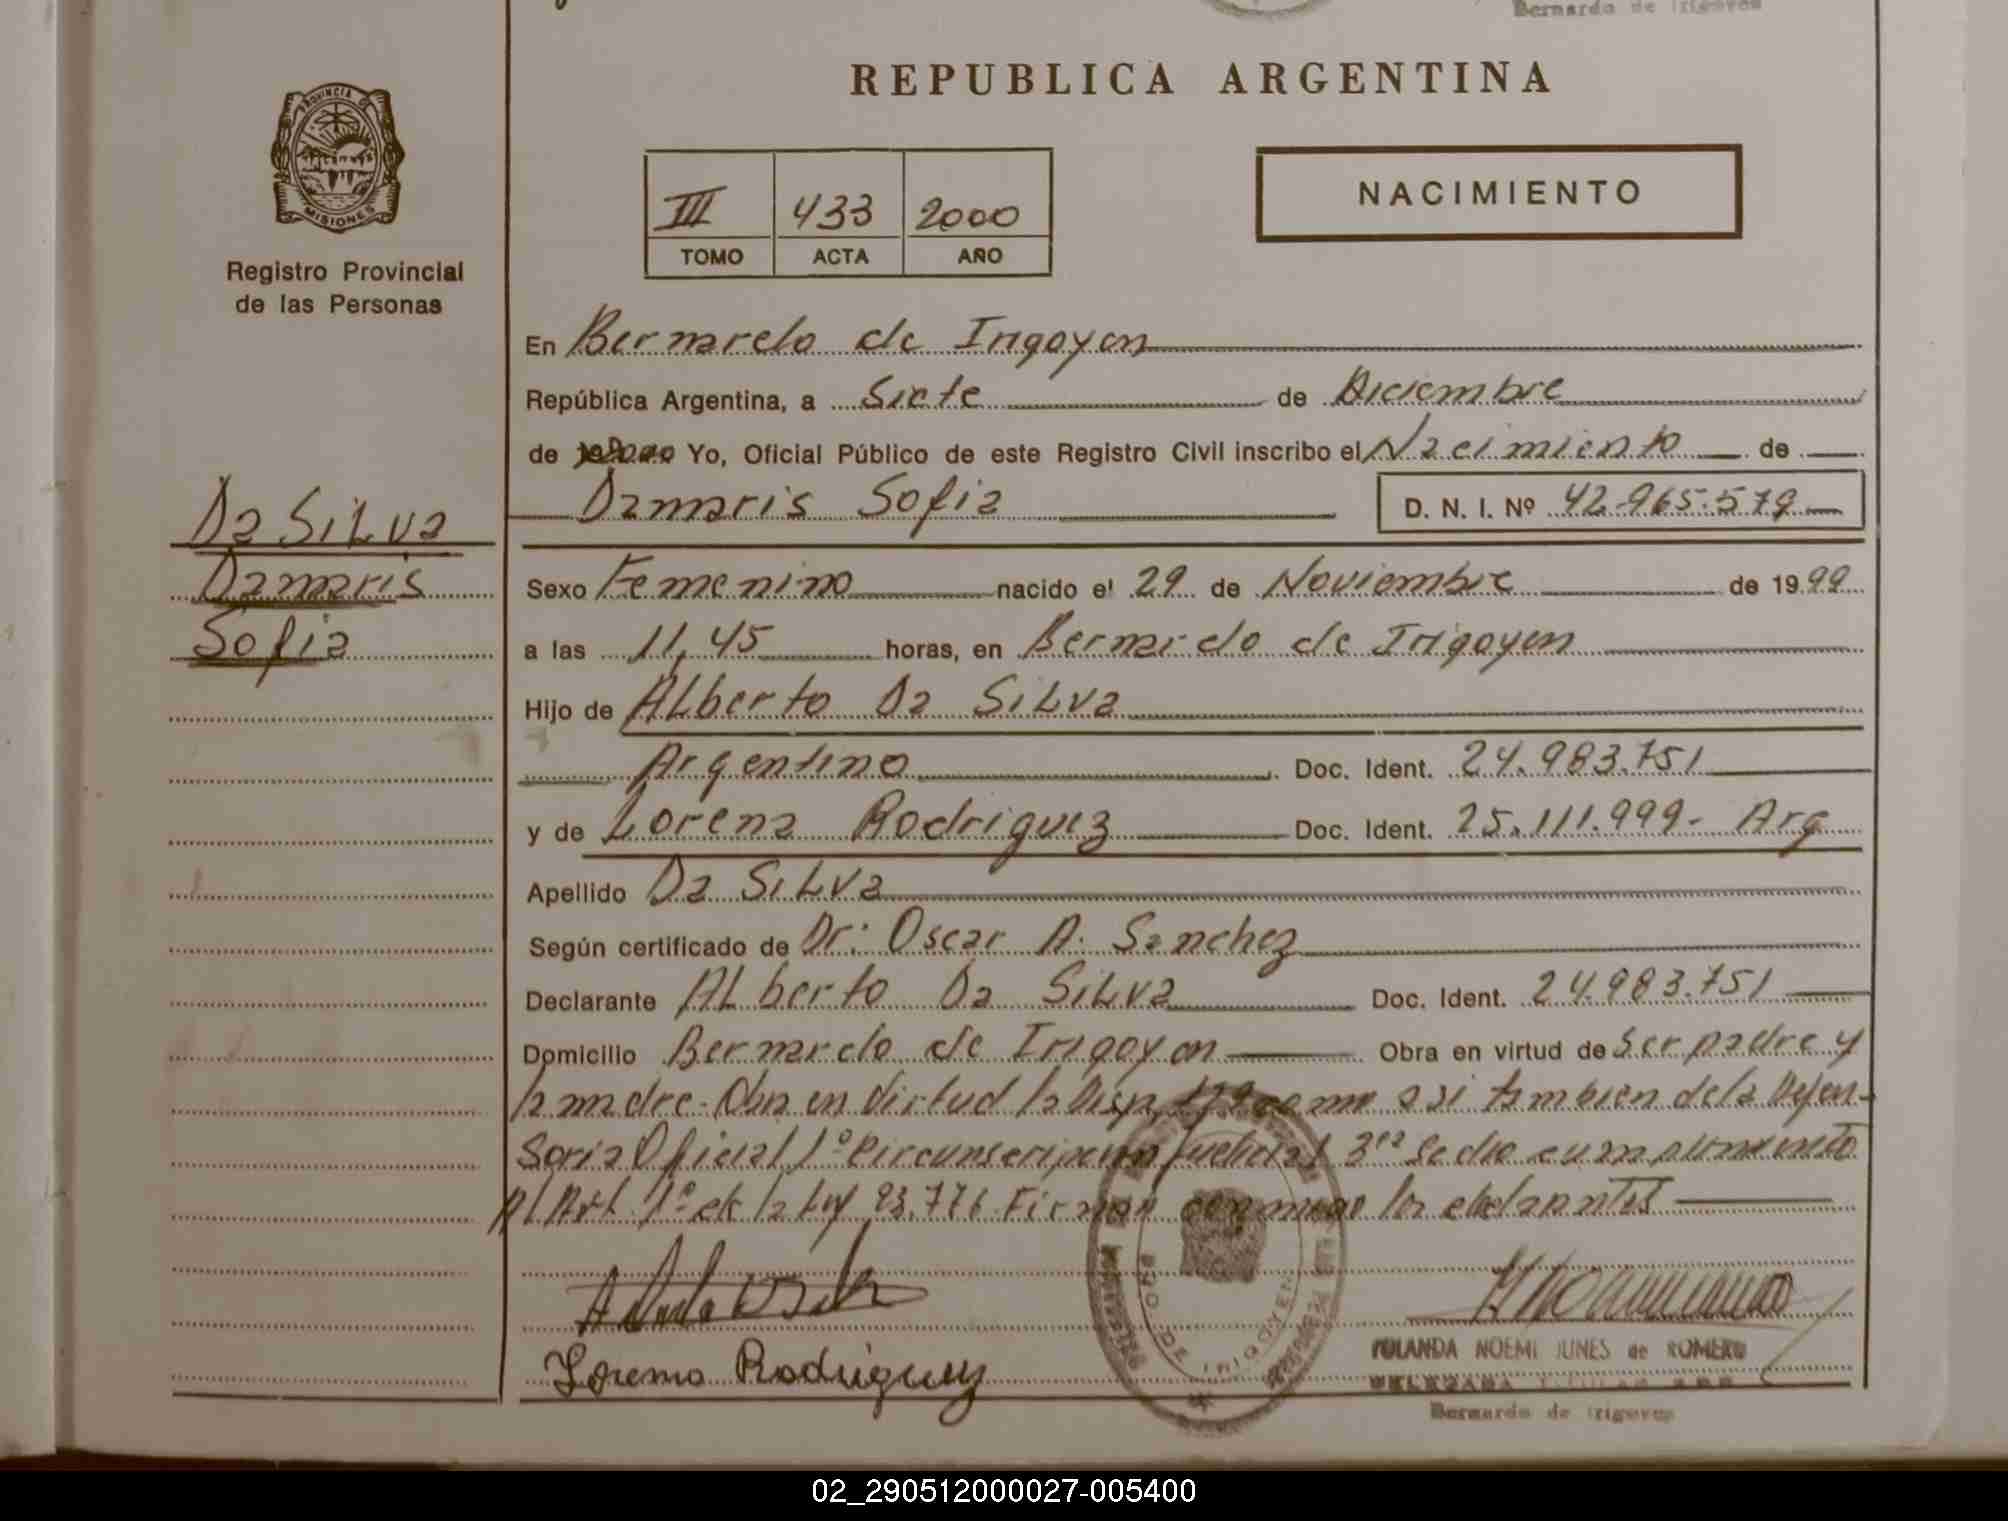 Bernardo de Irigoyen
REPUBLICA ARGENTINA
PROVINCIA DE
MISIONES
Registro Provincial
de las Personas
III 433 2000
TOMO ACTA AÑO
NACIMIENTO
En Bernardo de Irigoyen
República Argentina, a Siete de Diciembre
de 2000 Yo, Oficial Público de este Registro Civil inscribo el Nacimiento de
Damaris Sofia D. N. I. Nº 42.965.579
Da Silva
Damaris
Sofia
Sexo Femenino nacido el 29 de Noviembre de 1999
a las 11,45 horas, en Bernardo de Irigoyen
Hijo de Alberto Da Silva
Argentino Doc. Ident. 24.983.751
y de Lorena Rodriguez Doc. Ident. 25.111.999- Arg
Apellido Da Silva
Según certificado de Dr: Oscar A. Sanchez
Declarante Alberto Da Silva Doc. Ident. 24.983.751
Domicilio Bernardo de Irigoyen Obra en virtud de Ser padre y
la madre. en Virtud la Disp, como asi tambien de la Defen-
soria Oficial 1º Circunscripcion Judicial 3ra Sede cumplimiento
Al Art. 1º de la Ley 23.776. Firman conmigo los
Lorena Rodriguez
BDO. DE IRIGOYEN
YOLANDA NOEMI JUNES de ROMERO
DELEGADA TITULAR
Bernardo de Irigoyen
02_290512000027-005400